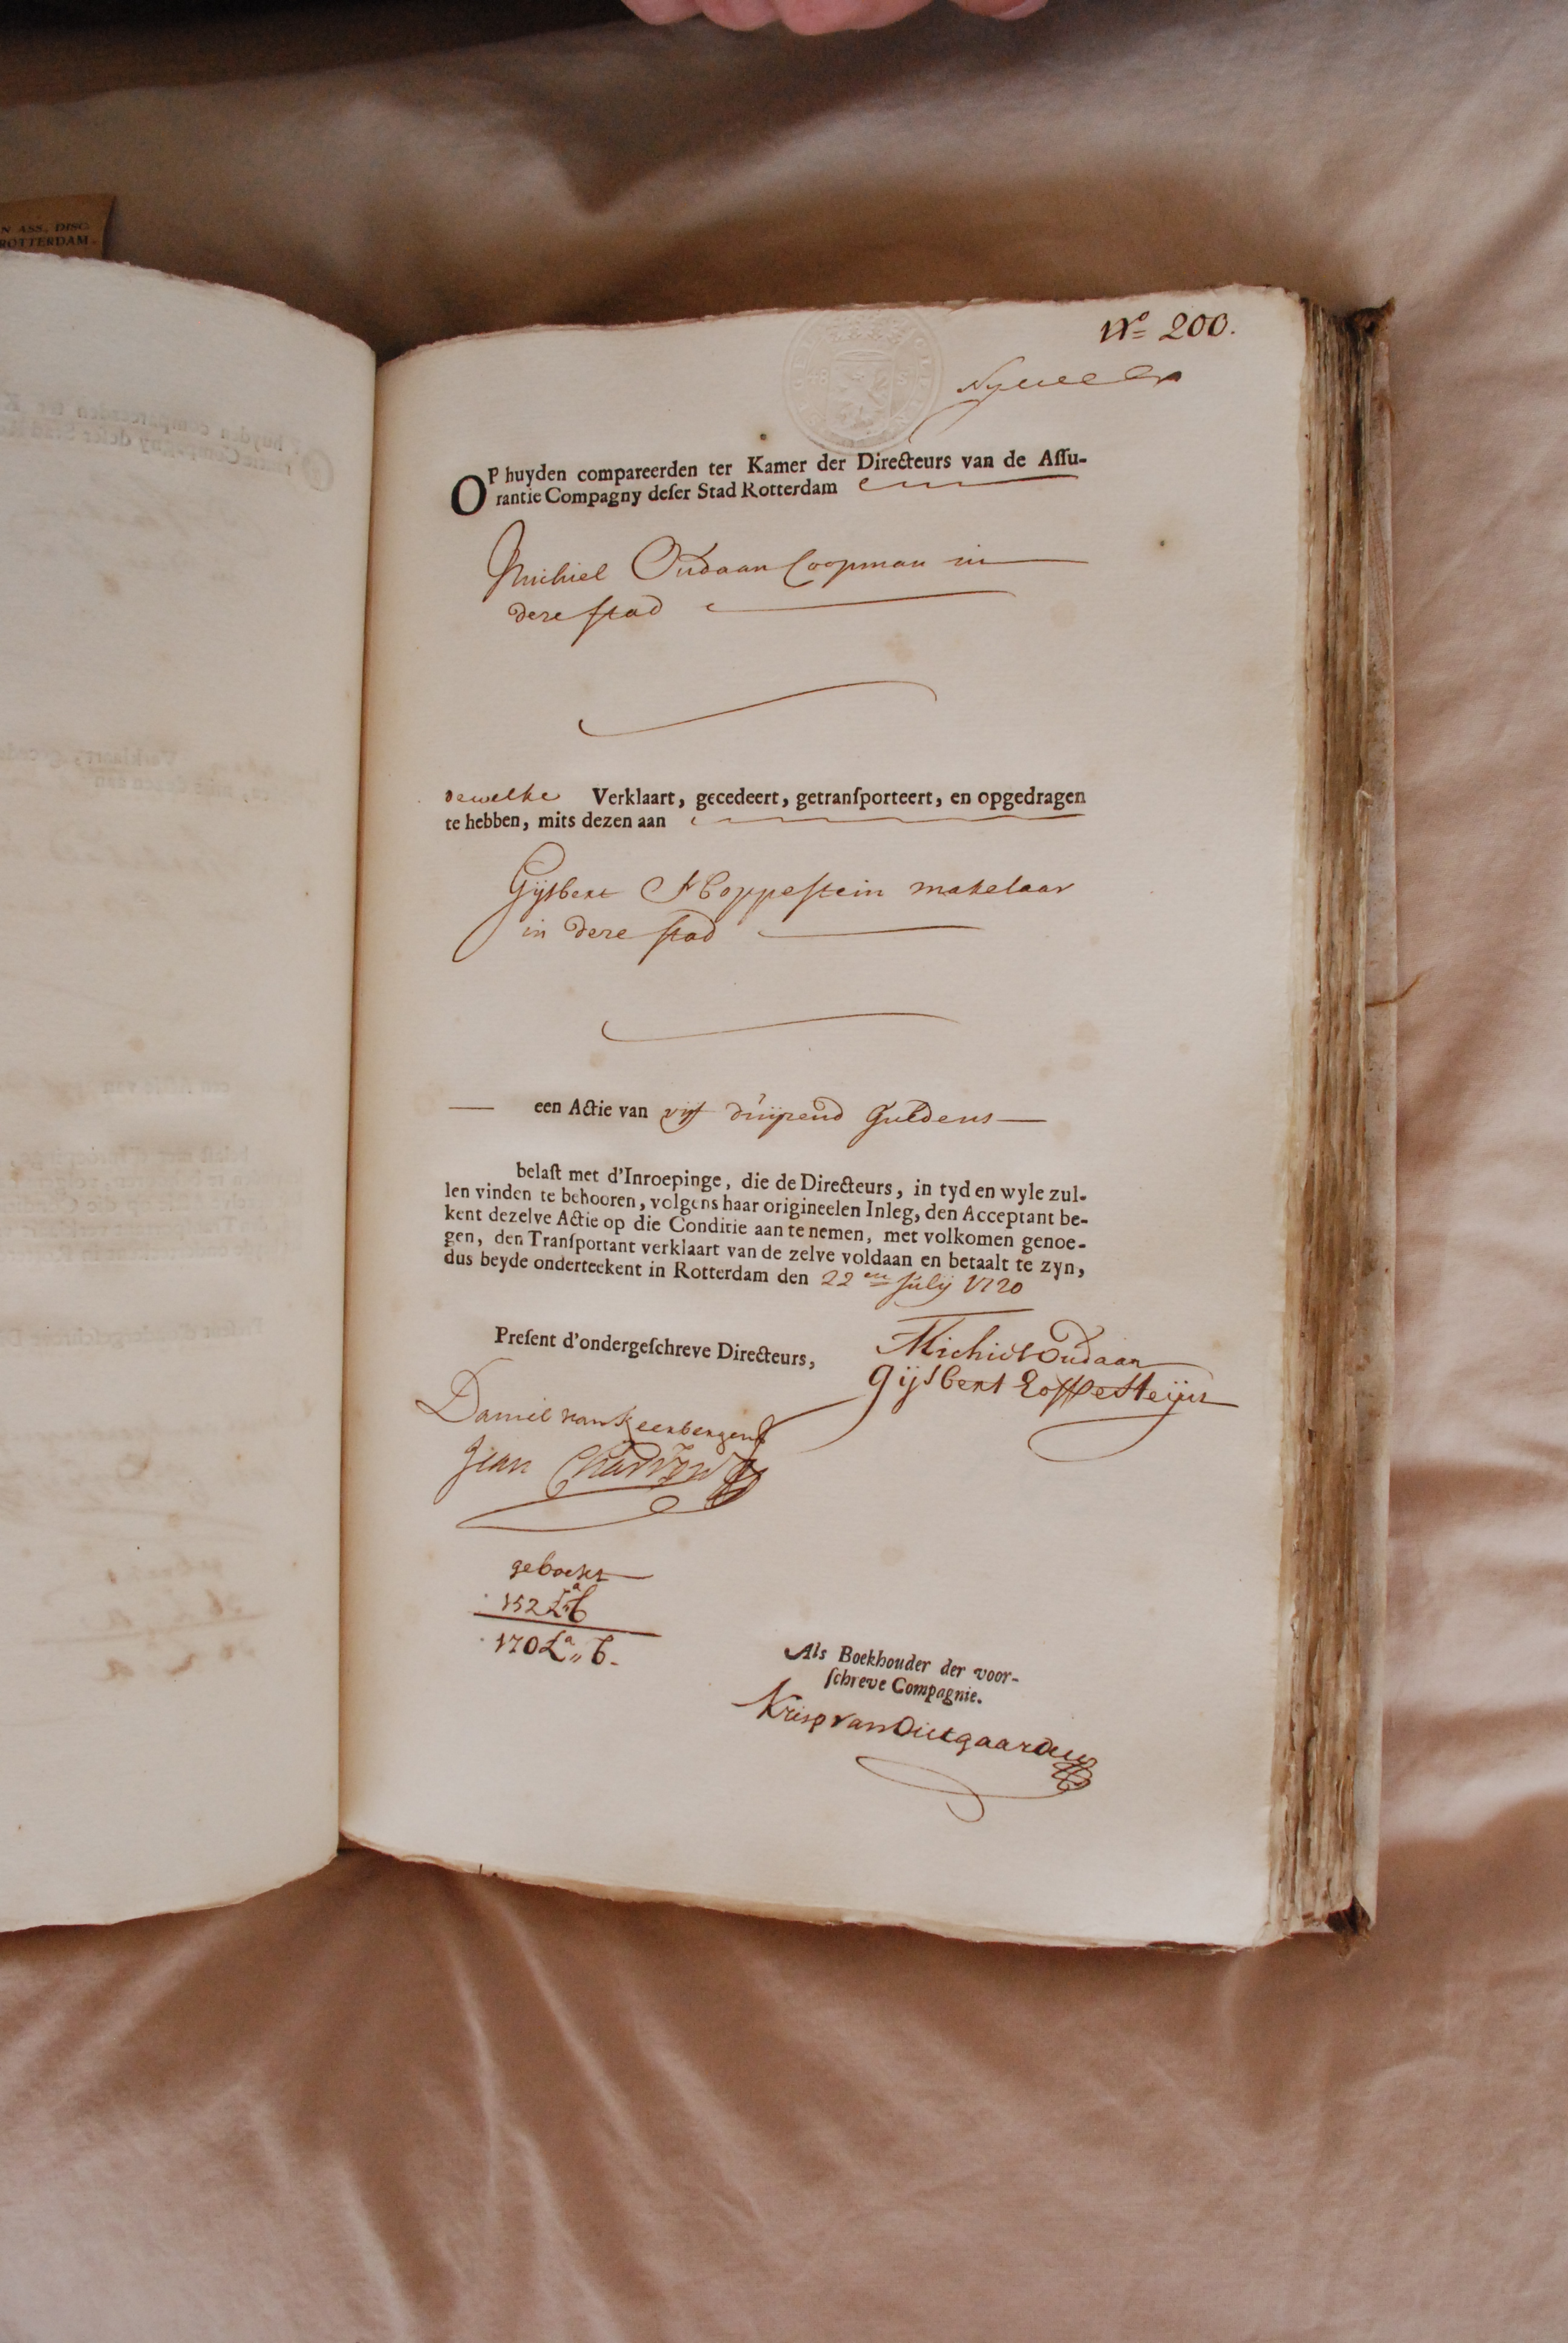 N ASS. DISC.
ROTTERDAM.
No 200.
OP huyden compareerden ter Kamer der Directeurs van de Assu-
rantie Compagny deser Stad Rotterdam
Michiel Oudaan Coopman in
deze stad
dewelke Verklaart, gecedeert, getransporteert, en opgedragen
te hebben, mits dezen aan
Gijsbert Hoppestein makelaar
in deze stad
een Actie van vijf duijzend Guldens
belast met d'Inroepinge, die de Directeurs, in tyd en wyle zul-
len vinden te behooren, volgens haar origineelen Inleg, den Acceptant be-
kent dezelve Actie op die Conditie aan te nemen, met volkomen genoe-
gen, den Transportant verklaart van de zelve voldaan en betaalt te zyn,
dus beyde onderteekent in Rotterdam den 22en Julij 1720
Present d'ondergeschreve Directeurs,
Michiel Oudaan
Gijsbert
Daniel van Keerbergen
Jean
geboekt
152 La b
170 La,, b.
Als Boekhouder der voor-
schreve Compagnie.
Krisp van